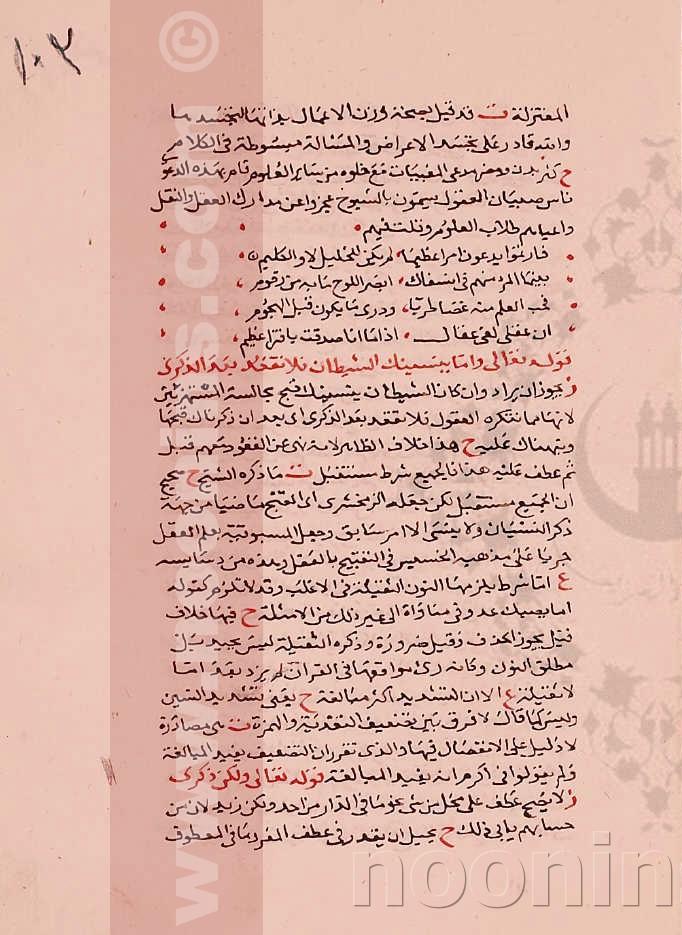 ١٠٣
المعتزلة ت قد قيل بصحة وزن الاعمال بذاتها لتجسدها
والله قادر على تجسد الاعراض والمسئلة مبسوطة في الكلام
ح كثر مدعى المغيبات مع خلوه من سائر العلوم قام بهذه الدعوى
ناس صبيان العقول يسمون بالشيوخ عجزوا عن مدارك العقل والنقل
واعياهم طلاب العلوم وقلت فيهم
فارتموا يدعون امرا عظيما لم يكن للخليل لا والكليم
بينما المرء منهم في انسفال ابصر اللوح ما به من رقوم
فجنى العلم منه غضا طريا ودرى ما يكون قبل الهجوم
ان عقلي لفي عقال اذا ما انا صدقت بافترا عظيم
قوله تعالى واما ينسينك الشيطان فلا تقعد بعد الذكرى
ز يجوز ان يراد وان كان الشيطان ينسينك قبح مجالسة المستهزئين
لانها مما تنكره العقول فلا تقعد بعد الذكرى اى بعد ان ذكرناك قبحها
ونبهناك عليه ح هذا خلاف الظاهر لانه نهى عن القعود معهم قبل
ثم عطف عليه هذا فالجميع شرط مستقبل ت ما ذكره الشيخ ح صحيح
ان الجميع مستقبل لكن جعله الزمخشرى اى القبح ماضيا من جهة
ذكر النسيان ولا ينسى الا امر سابق وجعل المسبوقية بعلم العقل
جريا على مذهب في التقبيح بالعقل وهذه من دسايسه
ع اما شرط يلزمها النون الثقيلة في الاغلب وقد لا تلزم كقوله
اما يصبك عدو في مناواة الى غير ذلك من الامثلة ح فيها خلاف
قيل يجوز الحذف وقيل ضرورة وذكره الثقيلة ليس بجيد بل
مطلق النون وكانه رءى مواقعها في القران لم يرد بعد اما
لا ثقيلة ع الا ان التشديد اكثر مبالغة ح يعنى بتشديد السين
وليس كما قال لا فرق بين تضعيف التعدية والهمزة ت هي مصادرة
لا دليل على الانفصال فيها والذى تقرر ان التضعيف يفيد المبالغة
ولم يقولوا في اكرم انه يفيد المبالغة قوله تعالى ولكن ذكرى
ز لا يصح عطف على محل من شى نحو ما في الدار من احد ولكن زيد لان من
حسابهم يابى ذلك ح يحيل ان يقدر في عطف المفرد ما في المعطوف
noonin